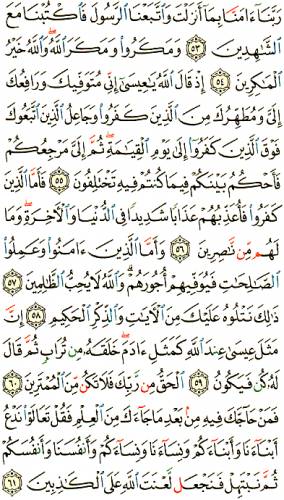 رَبَّنَآ ءَامَنَّا بِمَآ أَنزَلْتَ وَٱتَّبَعْنَا ٱلرَّسُولَ فَٱكْتُبْنَا مَعَ
ٱلشَّٰهِدِينَ ٥٣ وَمَكَرُوا۟ وَمَكَرَ ٱللَّهُ ۖ وَٱللَّهُ خَيْرُ
ٱلْمَٰكِرِينَ ٥٤ إِذْ قَالَ ٱللَّهُ يَٰعِيسَىٰٓ إِنِّى مُتَوَفِّيكَ وَرَافِعُكَ
إِلَىَّ وَمُطَهِّرُكَ مِنَ ٱلَّذِينَ كَفَرُوا۟ وَجَاعِلُ ٱلَّذِينَ ٱتَّبَعُوكَ
فَوْقَ ٱلَّذِينَ كَفَرُوٓا۟ إِلَىٰ يَوْمِ ٱلْقِيَٰمَةِ ۖ ثُمَّ إِلَىَّ مَرْجِعُكُمْ
فَأَحْكُمُ بَيْنَكُمْ فِيمَا كُنتُمْ فِيهِ تَخْتَلِفُونَ ٥٥ فَأَمَّا ٱلَّذِينَ
كَفَرُوا۟ فَأُعَذِّبُهُمْ عَذَابًا شَدِيدًا فِى ٱلدُّنْيَا وَٱلْءَاخِرَةِ وَمَا
لَهُم مِّن نَّٰصِرِينَ ٥٦ وَأَمَّا ٱلَّذِينَ ءَامَنُوا۟ وَعَمِلُوا۟
ٱلصَّٰلِحَٰتِ فَيُوَفِّيهِمْ أُجُورَهُمْ ۗ وَٱللَّهُ لَا يُحِبُّ ٱلظَّٰلِمِينَ ٥٧
ذَٰلِكَ نَتْلُوهُ عَلَيْكَ مِنَ ٱلْءَايَٰتِ وَٱلذِّكْرِ ٱلْحَكِيمِ ٥٨ إِنَّ
مَثَلَ عِيسَىٰ عِندَ ٱللَّهِ كَمَثَلِ ءَادَمَ ۖ خَلَقَهُۥ مِن تُرَابٍ ثُمَّ قَالَ
لَهُۥ كُن فَيَكُونُ ٥٩ ٱلْحَقُّ مِن رَّبِّكَ فَلَا تَكُن مِّنَ ٱلْمُمْتَرِينَ ٦٠
فَمَنْ حَآجَّكَ فِيهِ مِنۢ بَعْدِ مَا جَآءَكَ مِنَ ٱلْعِلْمِ فَقُلْ تَعَالَوْا۟ نَدْعُ
أَبْنَآءَنَا وَأَبْنَآءَكُمْ وَنِسَآءَنَا وَنِسَآءَكُمْ وَأَنفُسَنَا وَأَنفُسَكُمْ
ثُمَّ نَبْتَهِلْ فَنَجْعَل لَّعْنَتَ ٱللَّهِ عَلَى ٱلْكَٰذِبِينَ ٦١